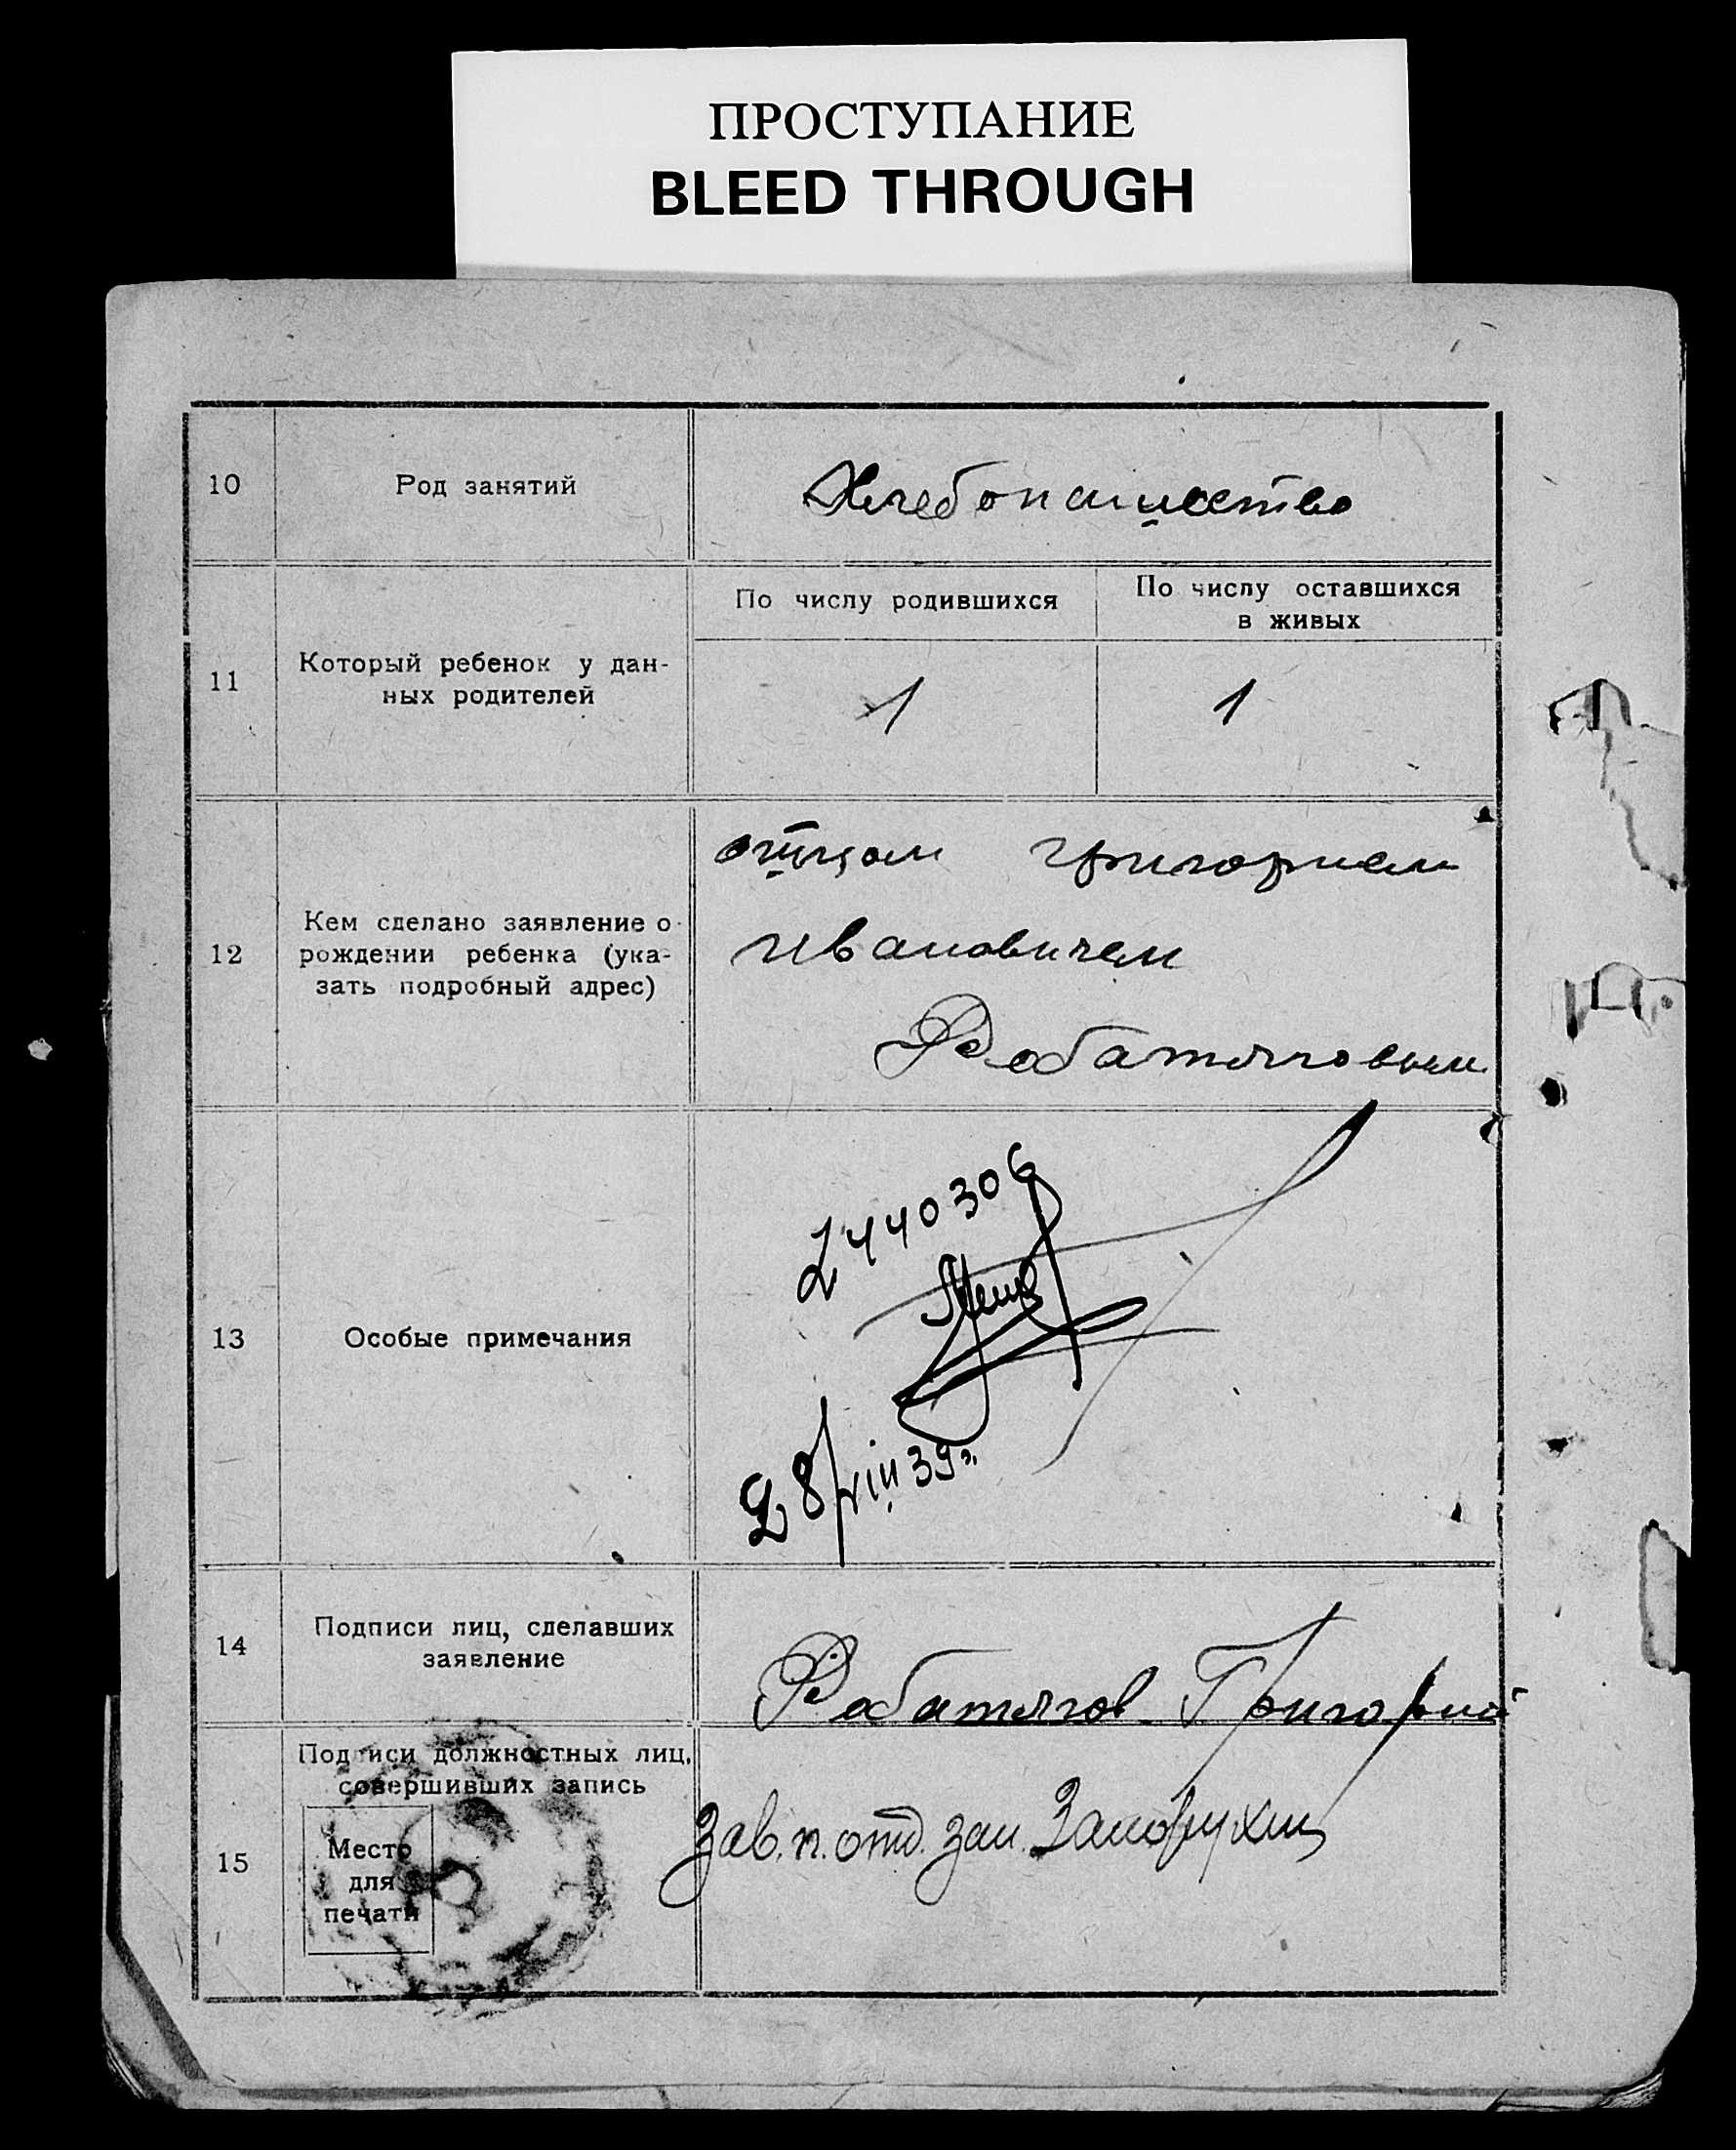 ПРОСТУПАНИЕ
BLEED THROUGH
10
Род занятий
Хлебопашество
11
Который ребенок у дан-
ных родителей
По числу родившихся
По числу оставшихся
в живых
1
1
12
Кем сделано заявление о
рождении ребенка (ука-
зать подробный адрес)
отцом григорием
ивановичем
Робатяговым
13
Особые примечания
2440306
28/VIII 39г.
14
Подписи лиц, сделавших
заявление
Робатягов Григорий
15
Подписи должностных лиц,
совершивших запись
Место
для
печати
Зав. п. отд. заи.